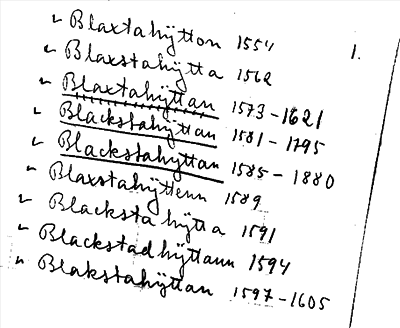 Blaxtahÿtton 1554
1.
Blaxstahÿtta 1562
Blaxtahÿttan 1573-1621
Blackstahÿttan 1581-1795
Blackstahyttan 1585-1880
Blaxstahÿttenn 1589
Blacksta hÿtta 1591
Blackstad hÿttann 1594
Blakstahÿttan 1597-1605